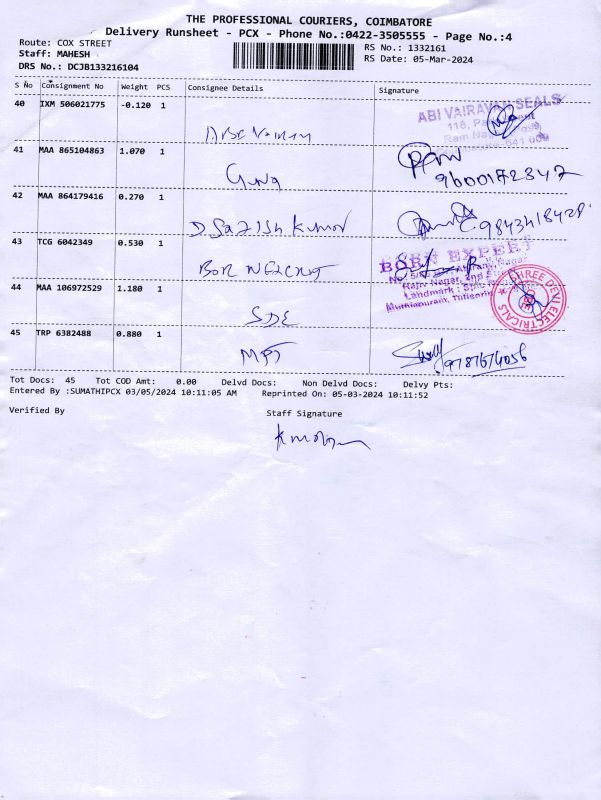 THE PROFESSIONAL COURIERS, COIMBATORE
Delivery Runsheet - PCX - Phone No.:0422-3505555 - Page No.:4
Route: COX STREET
RS No.: 1332161
Staff: MAHESH
RS Date: 05-Mar-2024
DRS No.: DCJB133216104
S No Consignment No Weight PCS Consignee Details Signature
40 IXM 506021775 -0.120 1
ABI VAIRAVAA SEALS
41 MAA 865104863 1.070 1
Guna
9600172347
42 MAA 864179416 0.270 1
D Satish Kumar
9843418428
43 TCG 6042349 0.530 1
BORN EXPERT
44 MAA 106972529 1.180 1
SHREE DEVI ELECTRICALS
SDE
45 TRP 6382488 0.880 1
Tot Docs: 45 Tot COD Amt: 0.00 Delvd Docs: Non Delvd Docs: Delvy Pts:
Entered By :SUMATHIPCX 03/05/2024 10:11:05 AM Reprinted On: 05-03-2024 10:11:52
Verified By Staff Signature